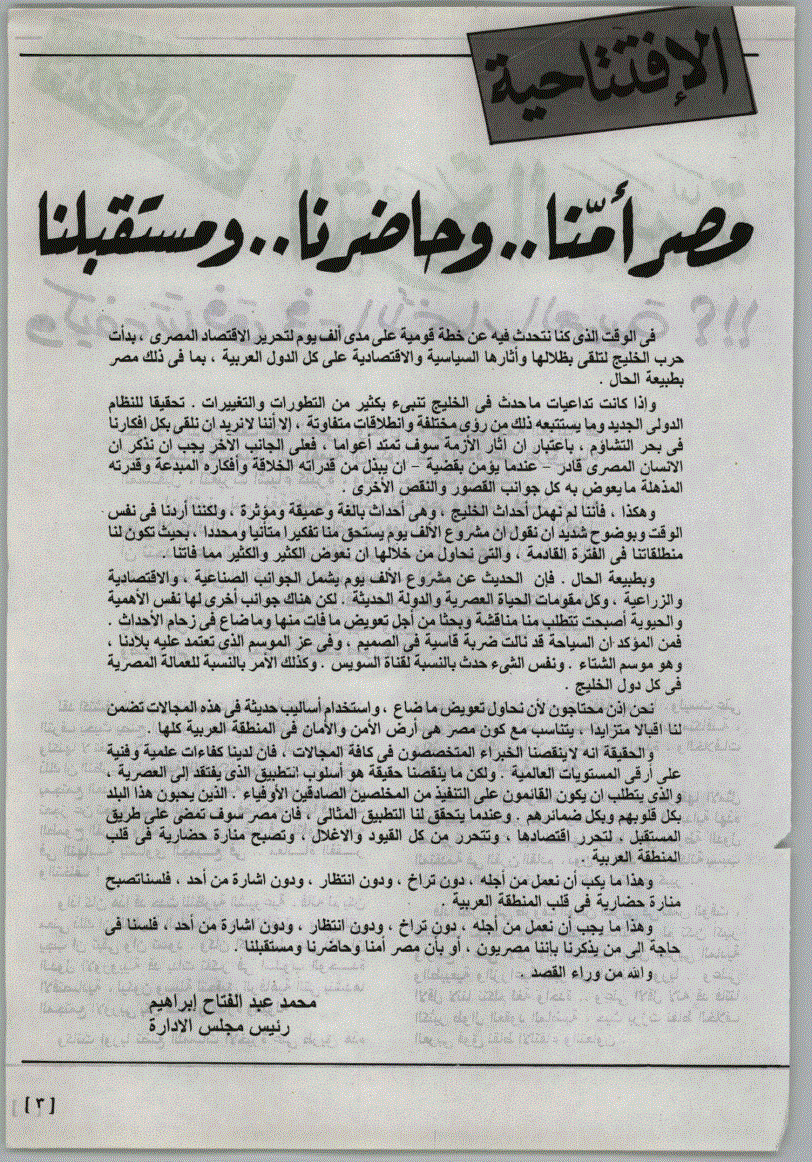 الإفتتاحية
مصر أمّنا .. وحاضرنا .. ومستقبلنا
فى الوقت الذى كنا نتحدث فيه عن خطة قومية على مدى ألف يوم لتحرير الاقتصاد المصرى ، بدأت
حرب الخليج لتلقى بظلالها وأثارها السياسية والاقتصادية على كل الدول العربية ، بما فى ذلك مصر
بطبيعة الحال .
وإذا كانت تداعيات ماحدث فى الخليج تنبىء بكثير من التطورات والتغييرات . تحقيقا للنظام
الدولى الجديد وما يستتبعه ذلك من رؤى مختلفة وانطلاقات متفاوتة ، إلا أننا لانريد ان نلقى بكل افكارنا
فى بحر التشاؤم ، باعتبار ان اثار الأزمة سوف تمتد أعواما ، فعلى الجانب الأخر يجب ان نذكر ان
الانسان المصرى قادر - عندما يؤمن بقضية - ان يبذل من قدراته الخلاقة وأفكاره المبدعة وقدرته
المذهلة مايعوض به كل جوانب القصور والنقص الأخرى .
وهكذا ، فأننا لم نهمل أحداث الخليج ، وهى أحداث بالغة وعميقة ومؤثرة ، ولكننا أردنا فى نفس
الوقت وبوضوح شديد ان نقول ان مشروع الألف يوم يستحق منا تفكيرا متأنيا ومحددا ، بحيث تكون لنا
منطلقاتنا فى الفترة القادمة ، والتى نحاول من خلالها ان نعوض الكثير والكثير مما فاتنا .
وبطبيعة الحال . فإن الحديث عن مشروع الألف يوم يشمل الجوانب الصناعية ، والاقتصادية
والزراعية ، وكل مقومات الحياة العصرية والدولة الحديثة . لكن هناك جوانب أخرى لها نفس الأهمية
والحيوية أصبحت تتطلب منا مناقشة وبحثا من أجل تعويض ما فات منها وما ضاع فى زحام الأحداث .
فمن المؤكد ان السياحة قد نالت ضربة قاسية فى الصميم ، وفى عز الموسم الذى تعتمد عليه بلادنا ،
وهو موسم الشتاء . ونفس الشىء حدث بالنسبة لقناة السويس . وكذلك الأمر بالنسبة للعمالة المصرية
فى كل دول الخليج .
نحن إذن محتاجون لأن نحاول تعويض ما ضاع ، واستخدام أساليب حديثة فى هذه المجالات تضمن
لنا اقبالا متزايدا ، يتناسب مع كون مصر هى أرض الأمن والأمان فى المنطقة العربية كلها .
والحقيقة انه لا ينقصنا الخبراء المتخصصون فى كافة المجالات ، فان لدينا كفاءات علمية وفنية
على أرقى المستويات العالمية . ولكن ما ينقصنا حقيقة هو أسلوب التطبيق الذى يفتقد إلى العصرية ،
والذى يتطلب ان يكون القائمون على التنفيذ من المخلصين الصادقين الأوفياء ، الذين يحبون هذا البلد
بكل قلوبهم وبكل ضمائرهم . وعندما يتحقق لنا التطبيق المثالى ، فان مصر سوف تمضى على طريق
المستقبل ، لتحرر إقتصادها ، وتتحرر من كل القيود والاغلال ، وتصبح منارة حضارية فى قلب
المنطقة العربية .
وهذا ما يكب أن نعمل من أجله ، دون تراخ ، ودون انتظار ، ودون اشارة من أحد ، فلسناتصبح
منارة حضارية فى قلب المنطقة العربية .
وهذا ما يجب أن نعمل من أجله ، دون تراخ ، ودون انتظار ، ودون اشارة من أحد ، فلسنا فى
حاجة الى من يذكرنا بإننا مصريون ، أو بأن مصر أمنا وحاضرنا ومستقبلنا
والله من وراء القصد .
محمد عبد الفتاح إبراهيم
رئيس مجلس الادارة
[ ٣ ]